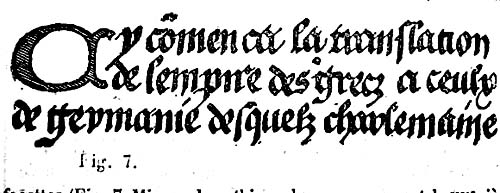 Cy cōmenca la translation
de lempire des grecz a ceulx
de germanie desquelz charlemaine
Fig. 7.
(Fig. 7.